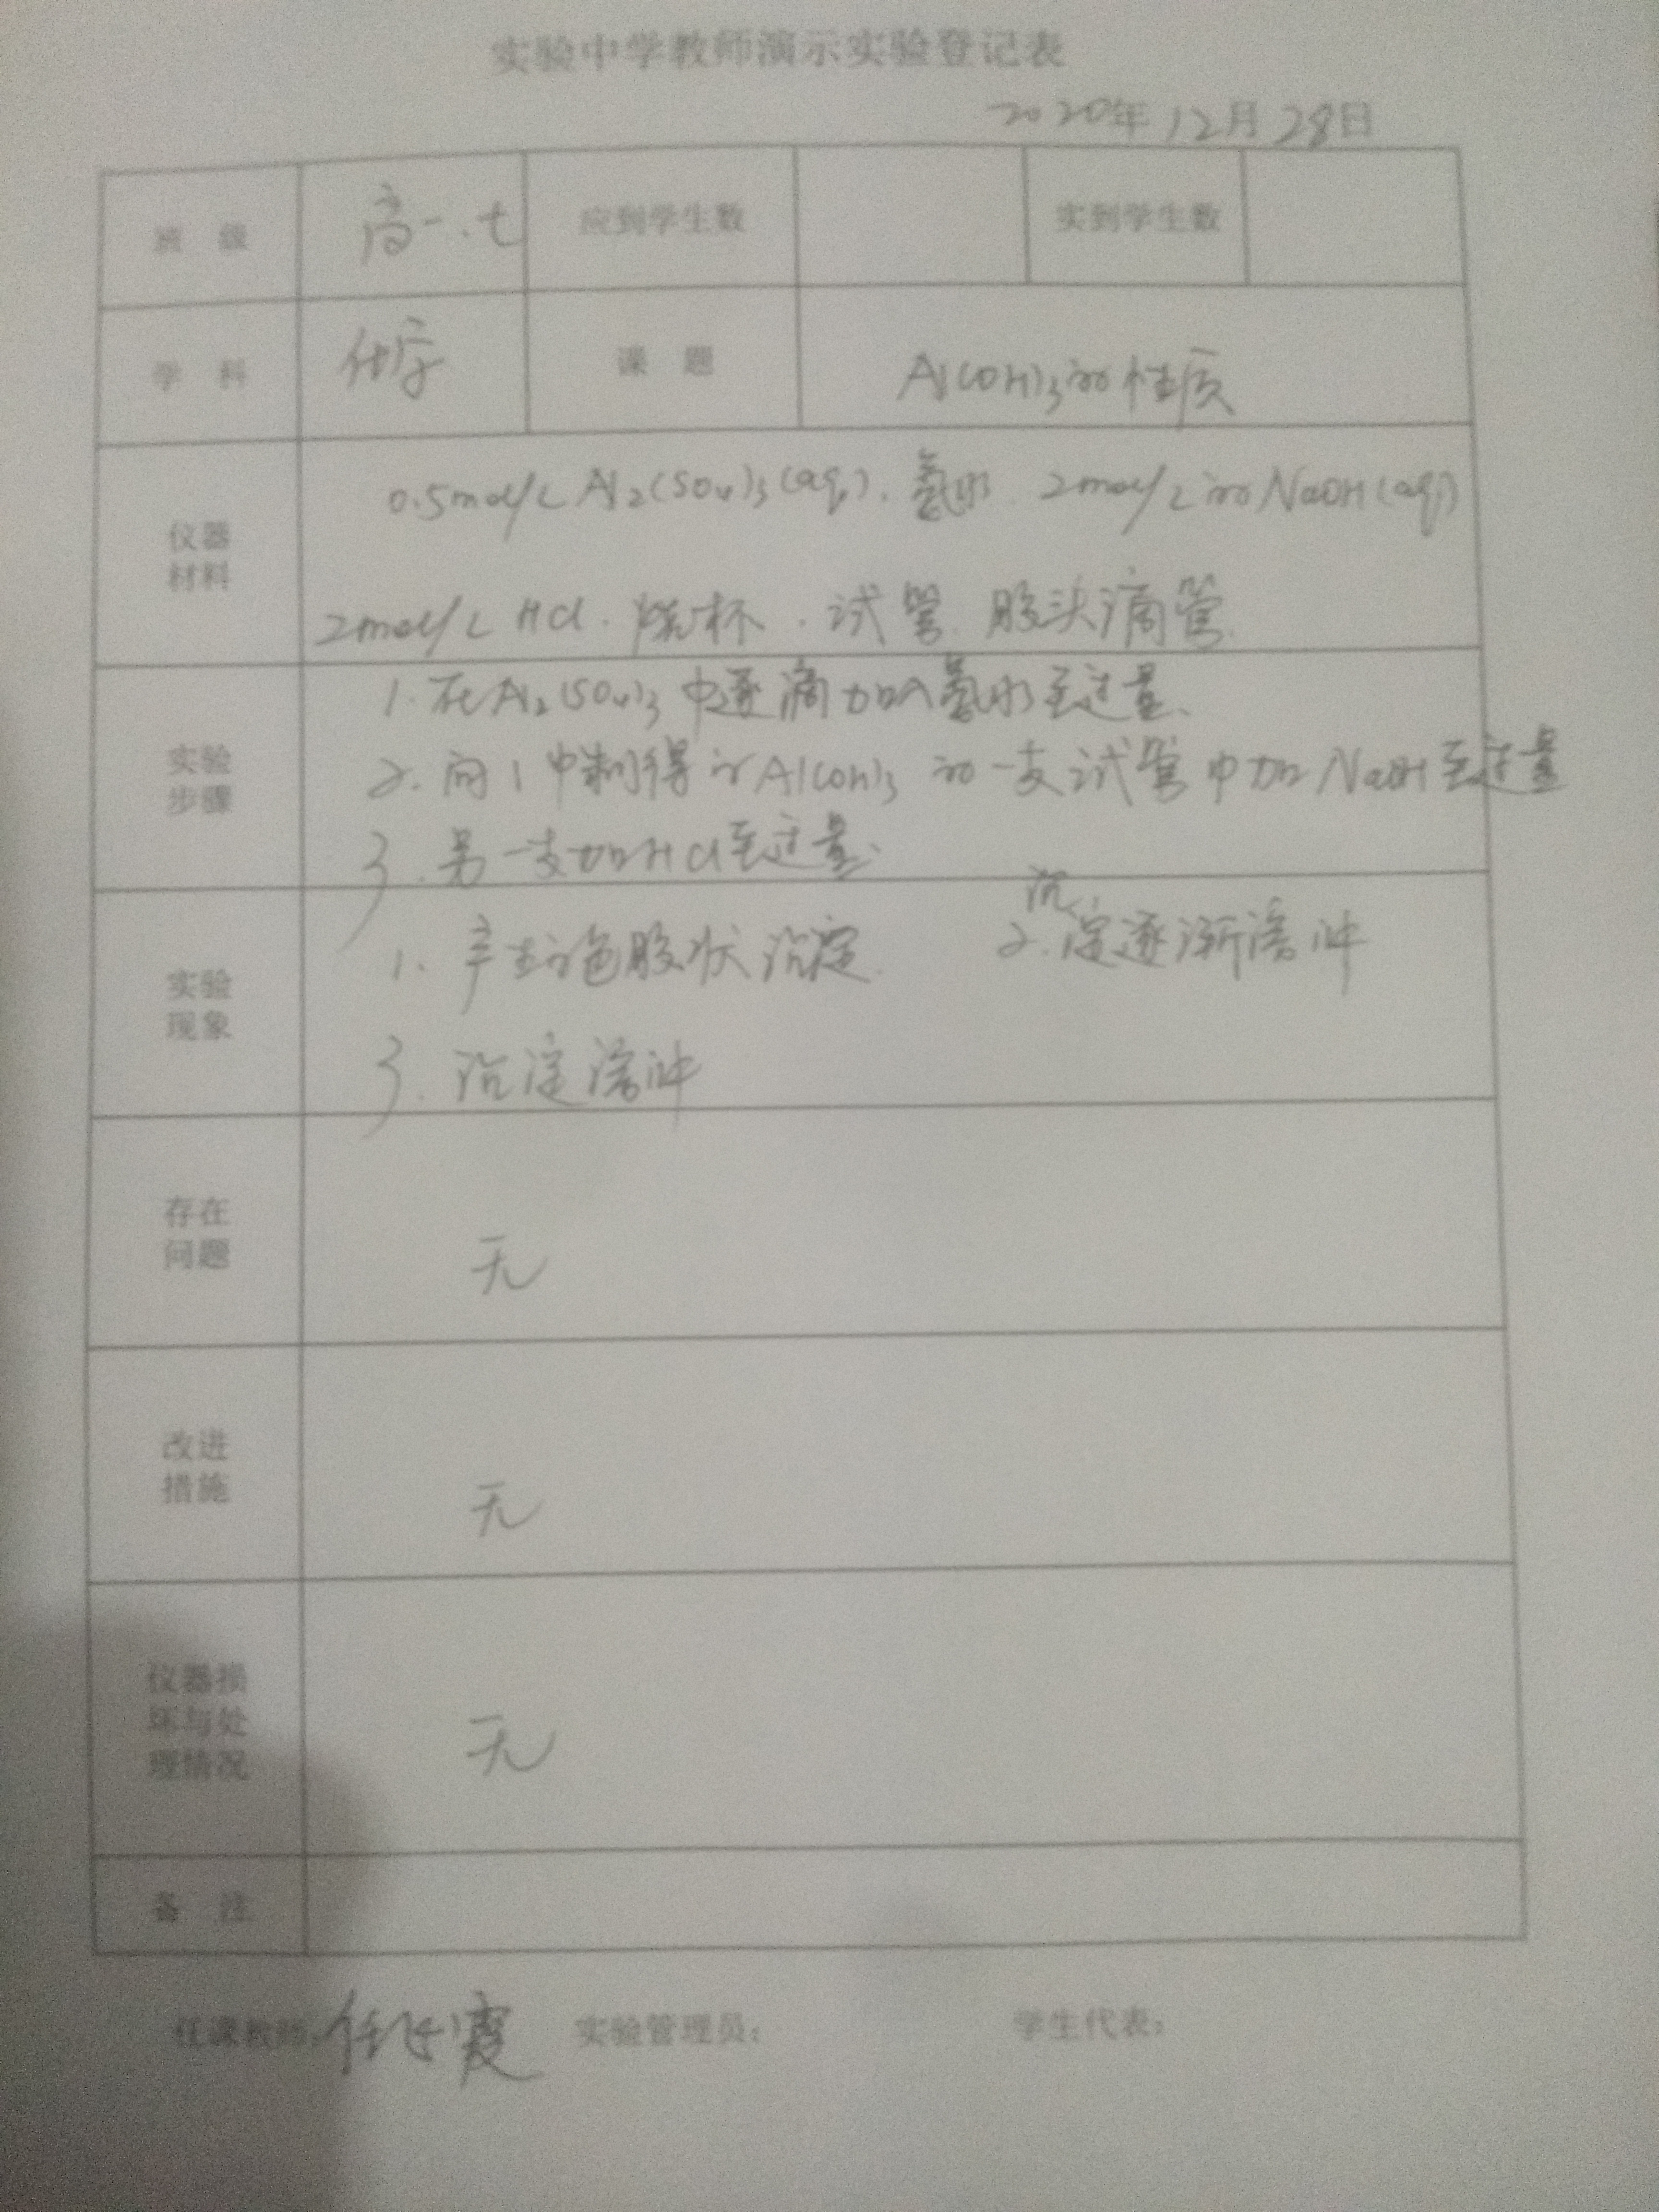 实验中学教师演示实验登记表
2020年12月28日
班 级 高一.七 应到学生数 实到学生数
学 科 化学 课 题 Al(OH)3的性质
仪器
材料
0.5mol/L Al2(SO4)3(aq). 氨水. 2mol/L的NaOH(aq)
2mol/L HCl. 烧杯. 试管. 胶头滴管.
实验
步骤
1. 在Al2(SO4)3中逐滴加入氨水至过量.
2. 向1中制得的Al(OH)3的一支试管中加NaOH至过量
3. 另一支加HCl至过量.
实验
现象
1. 产生白色胶状沉淀. 2. 沉淀逐渐溶解
3. 沉淀溶解
存在
问题
无
改进
措施
无
仪器损
坏与处
理情况
无
备 注
任课教师: 任 霞 实验管理员: 学生代表: